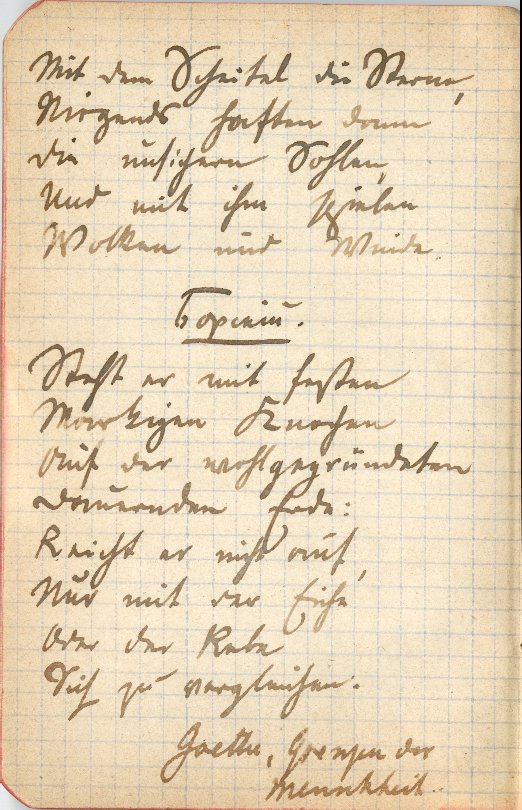 Mit dem Scheitel die Sterne,
Nirgends haften dann
die unsichern Sohlen,
Und mit ihm spielen
Wolken und Winde.
Steht er mit festen
Markigen Knochen
Auf der wohlgegründeten
Dauernden Erde:
Reicht er nicht auf,
Nur mit der Eiche
Oder der Rebe
Sich zu vergleichen.
Goethe, Grenzen der
Menschheit.